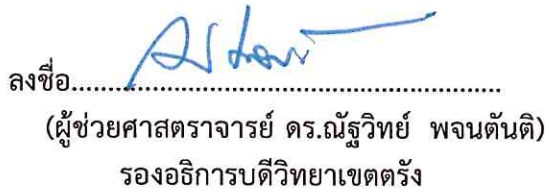 ลงชื่อ................................................................
(ผู้ช่วยศาสตราจารย์ ดร.ณัฐวิทย์ พจนตันติ)
รองอธิการบดีวิทยาเขตตรัง